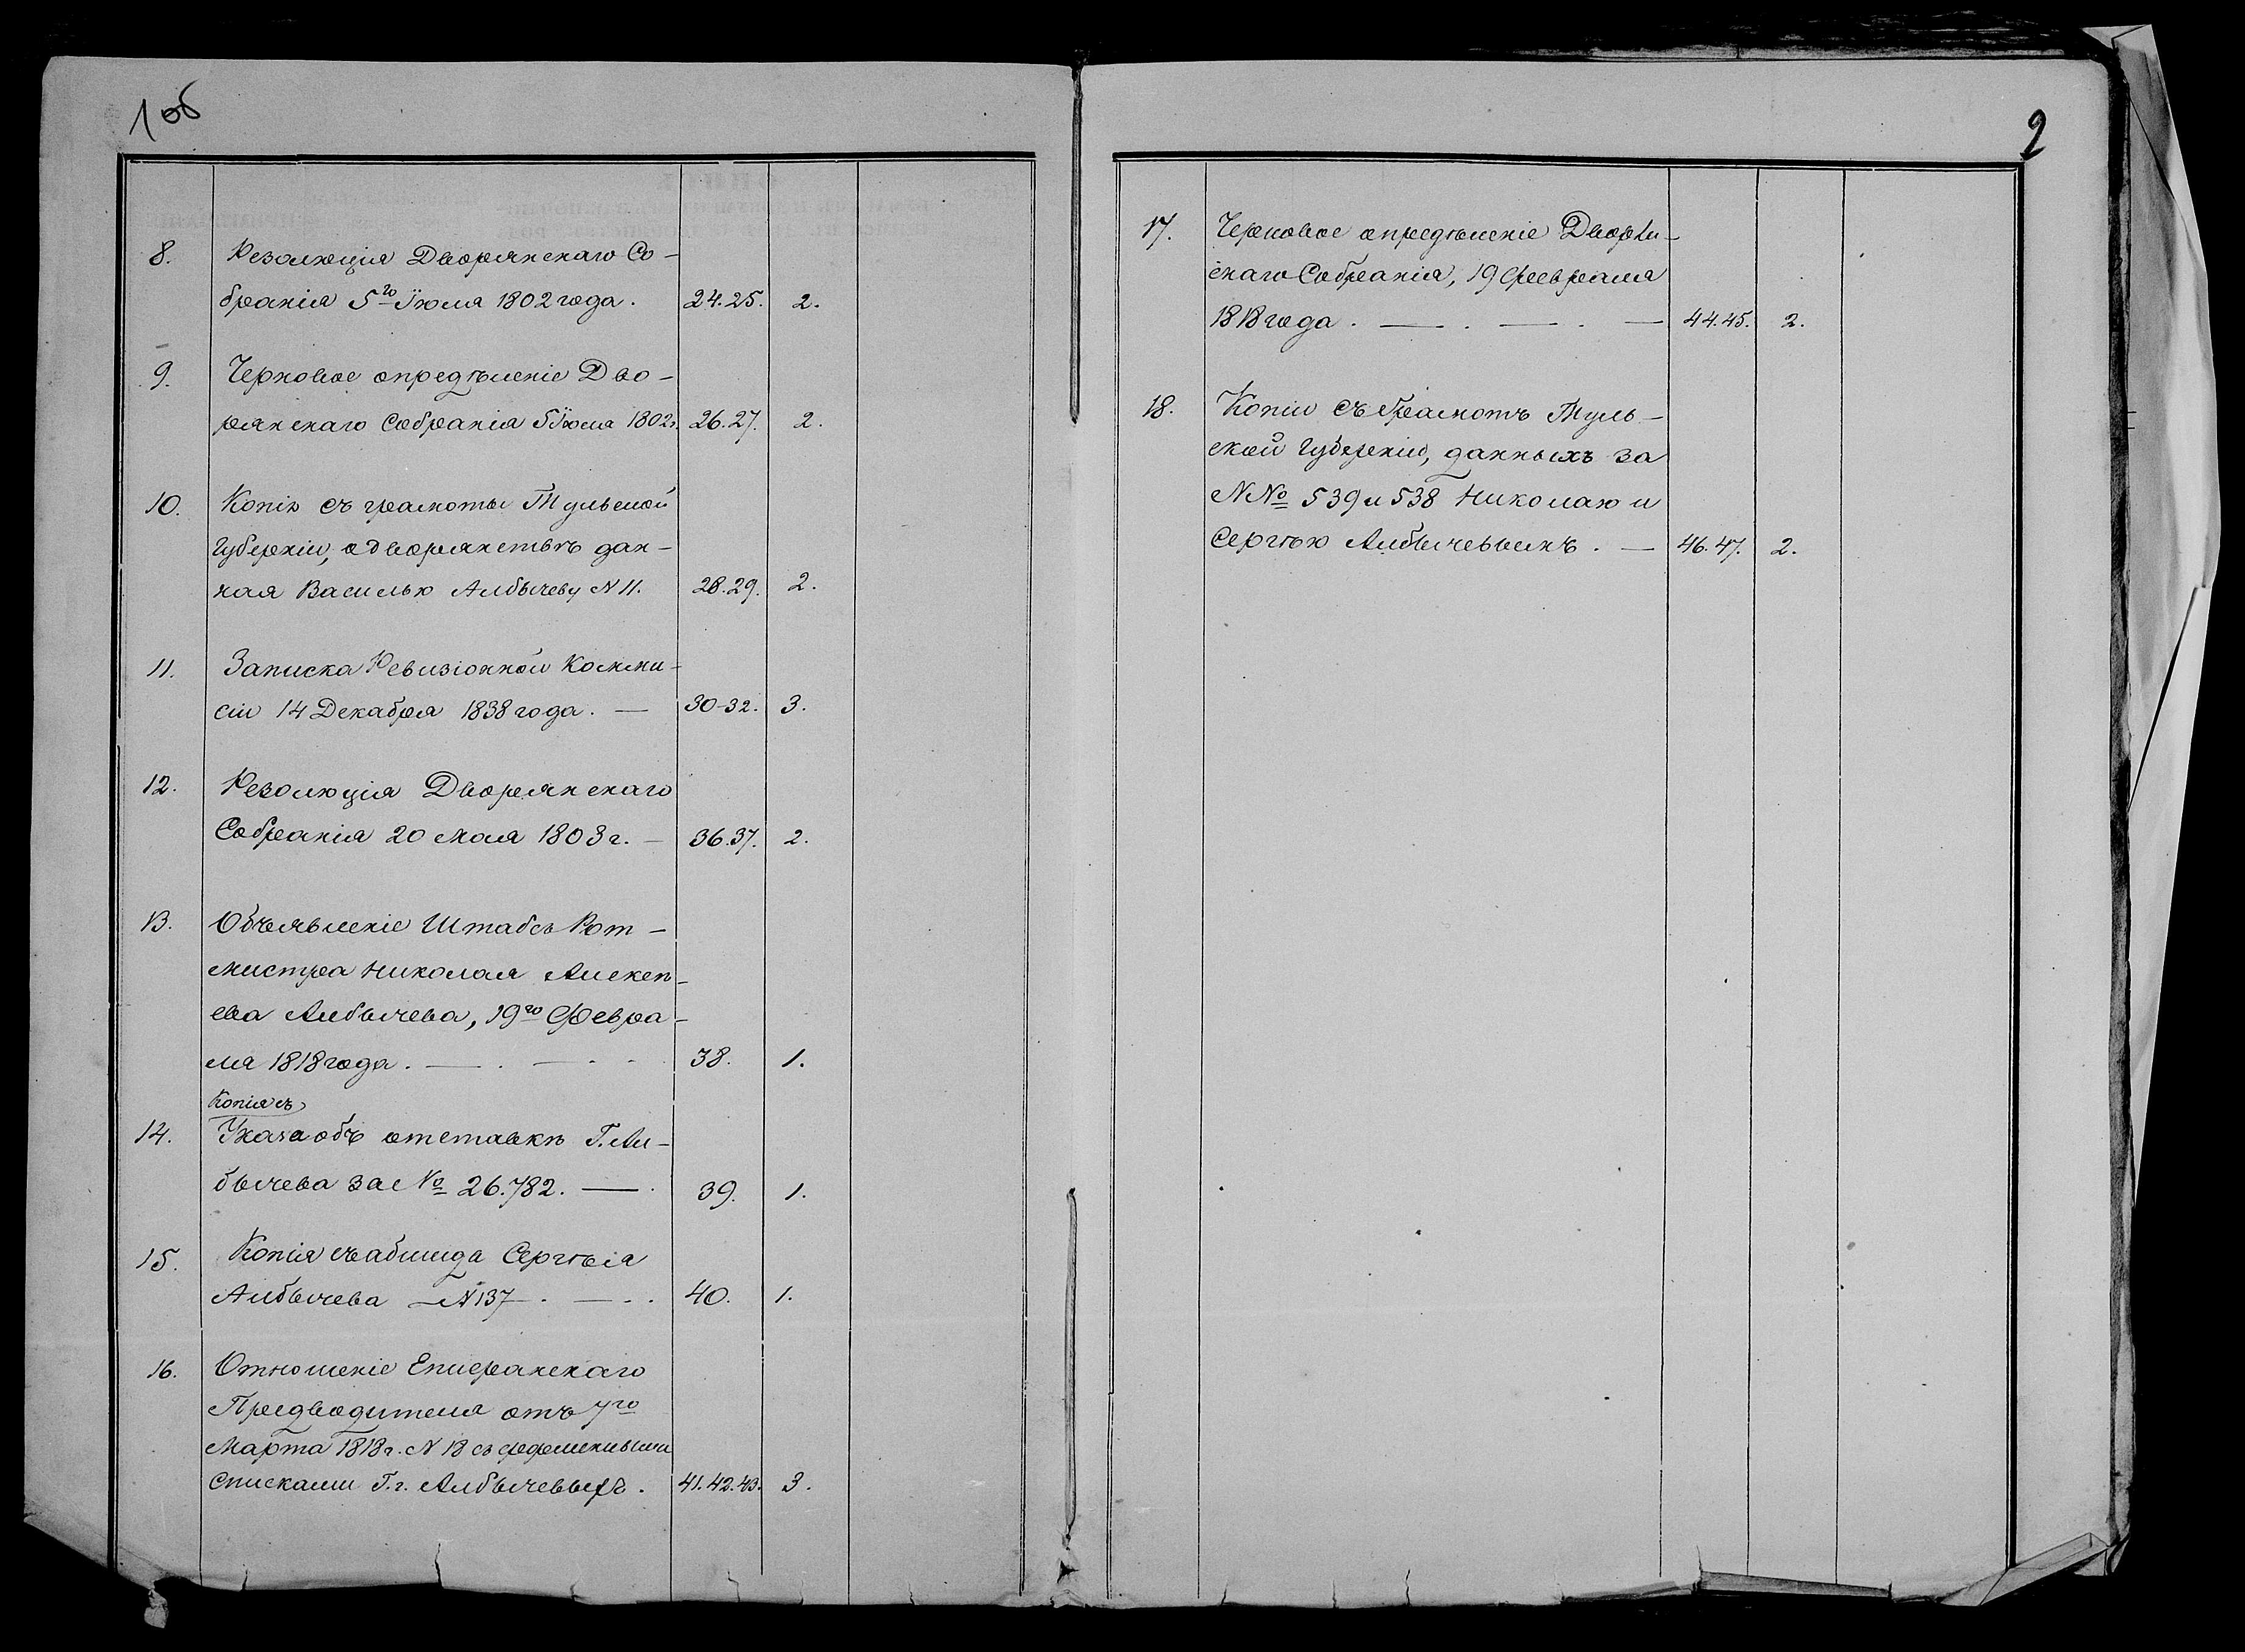 1 об
8. Резолюція Дворянскаго Со-
бранія 5го Іюля 1802 года. 24.25. 2.
9. Черновое опредѣленіе Дво-
рянскаго Собранія 5 Іюля 1802 г. 26.27. 2.
10. Копія съ грамоты Тульской
Губерніи, о дворянствѣ дан-
ная Василью Албычеву N 11. 28.29. 2.
11. Записка Ревизіонной Комми-
сіи 14 Декабря 1838 года. — 30-32. 3.
12. Резолюція Дворянскаго
Собранія 20 Мая 1803 г. — 36.37. 2.
13. Объявленіе Штабсъ Рот-
мистра Николая Алексѣ-
ева Албычева, 19го Февра-
ля 1818 года. — . — 38. 1.
Копія съ
14. Указа объ отставкѣ Г. Ал-
бычева за № 26.782. — . 39. 1.
15. Копія съ абшида Сергѣя
Албычева — N 137 — . — 40. 1.
16. Отношеніе Епифанскаго
Предводителя отъ 7го
Марта 1818 г. N 18 съ формулярными
Списками Г.г. Албычевыхъ. 41.42.43. 3.
2
17. Черновое опредѣленіе Дворян-
скаго Собранія, 19 Февраля
1818 года. — . — . — 44.45. 2.
18. Копіи съ грамотъ Туль-
ской Губерніи, данныхъ за
N№ 539 и 538 Николаю и
Сергѣю Албычевымъ. — 46.47. 2.